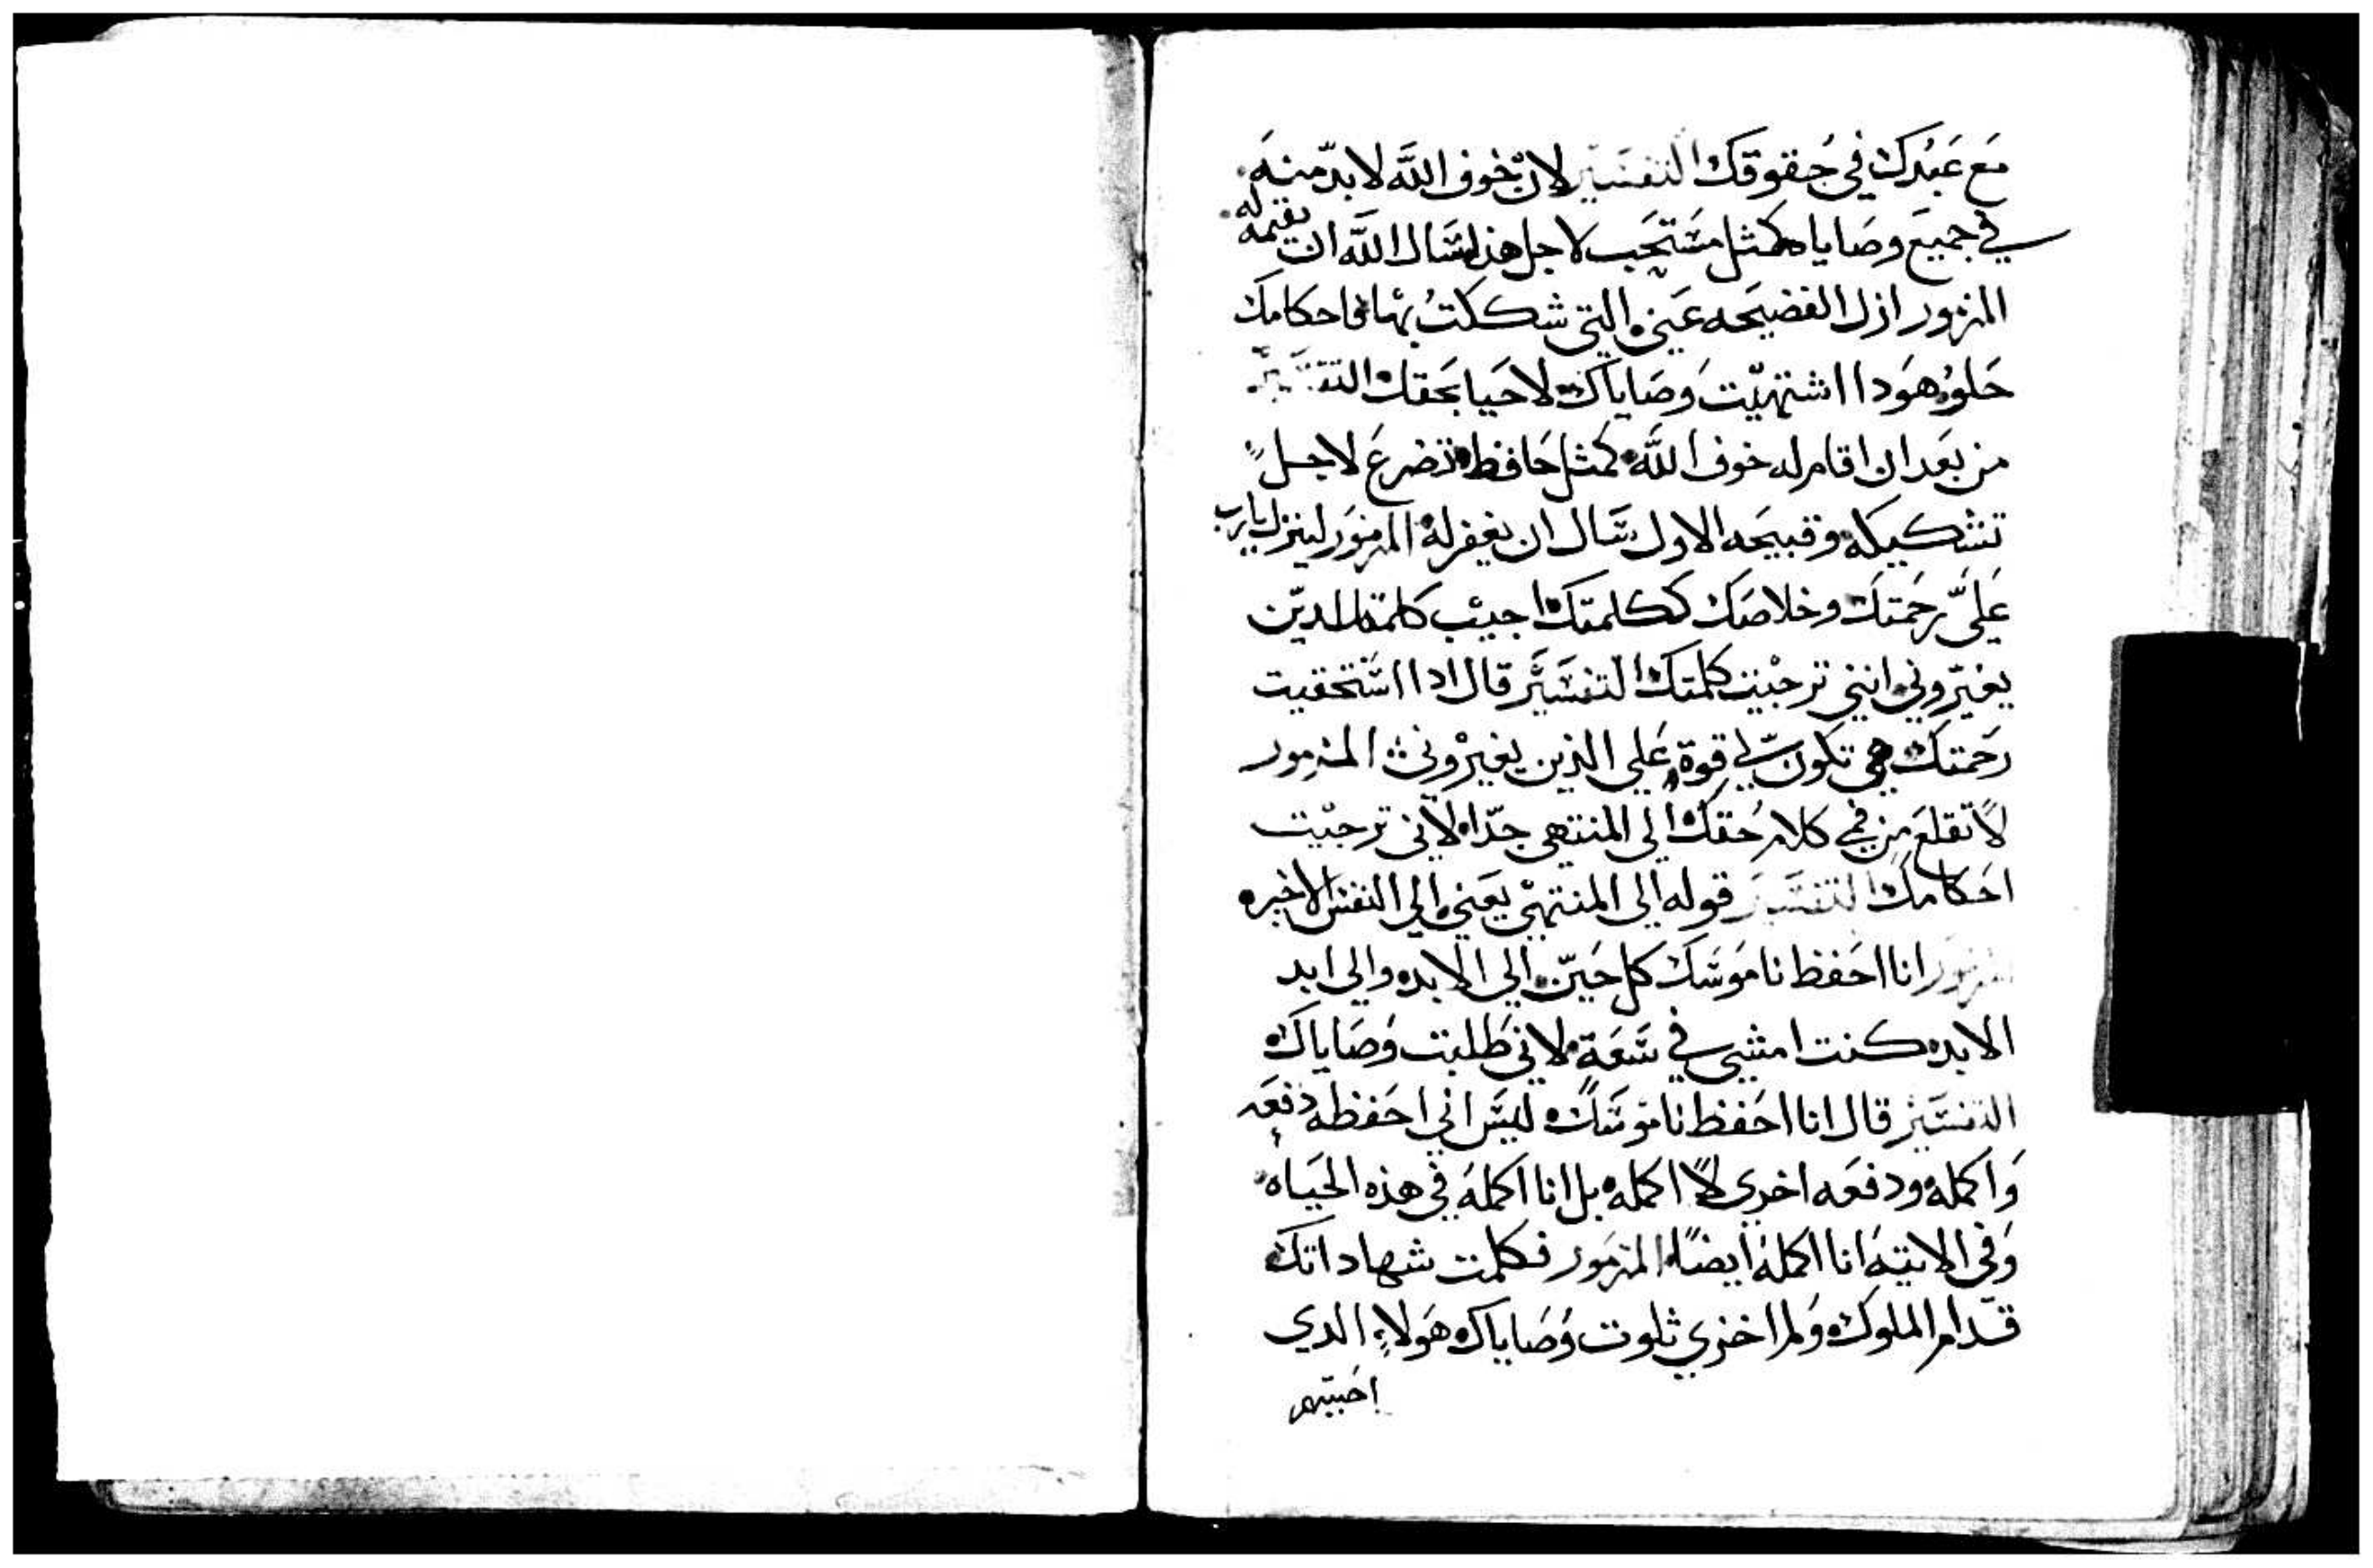 مَع عَبْدك في حُقوقك التفسَير لان خوف اللَّه لا بدّ منهَ
في جميعَ وصَاياه كمثل مسَتحَب لاجل هذا سَال اللَّه ان يقيمه له
المزمور ازل الفضيحَه عَني التي شككتُ بهَا فاحكامك
حَلوُه هوَدا اشتهيّت وَصَاياك لاحَيا بحَقك التفسَير
من بعَد ان اقام له خوف اللَّه كمثل حَافظ تضرعَ لاجل
تشكيكه وقبيحَه الاول سَال ان يغفر له المزمَور لينزل يارب
عَليَّ رحَمتك وخلاصَك ككلمتك اجيبْ كلمة للديّن
يعَيّروني انني ترجيْت كلمتك التفسَيَر قال ادا استَحقيت
رحَمتك هي تكون لي قوة عَلي الذين يعَيرْوني المزمور
لاً تقلعَ مِن فمي كلام حُقك الي المنتهي جدّا لاني ترجيْت
احَكامك التفسَيَر قوله الي المنتهيْ يعَني الي النفسَ الاخيره
المزمَور انا احَفظ نامَوسَك كل حَيّن الي الابد والي ابد
الابد كنت امشي في سَعَةٍ لاني طَلبت وَصَاياك
التفسَيَر قال انا احَفظ نامَوسَك ليسَ اني احَفظه دفعَه
وَاكمله ودفعَه اخري لاً اكمله بل انا اكملهَ في هذه الحيَاه
وَفي الاتيهَ انا اكملهَ ايضًا المزمَور تكلمت شهاداتك
قدّام الملوك وَلم اخزي تلوت وَصَاياك هَولاءِ الدي
احَببتهم